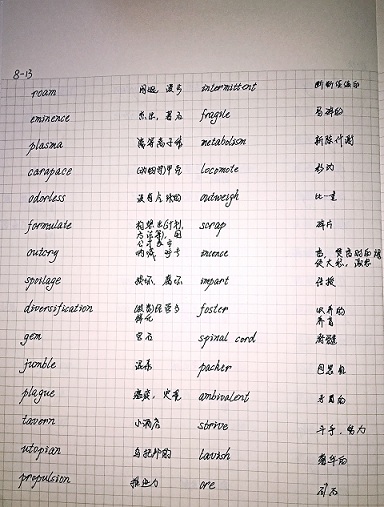 8-13
roam 闲逛 漫步 intermittent 断断续续的
eminence 杰出，著名 fragile 易碎的
plasma 等离子体 metabolism 新陈代谢
carapace 甲壳 locomote 移动
odorless 没有气味的 outweigh 比…重
formulate scrap 碎片
outcry 呐喊 incense 香
spoilage 损坏 腐坏 impart 传授
diversification foster 收养的
养育
gem 宝石 spinal cord 脊髓
jumble 混杂 packer 包装机
plague 瘟疫，灾难 ambivalent 矛盾的
tavern 小酒店 strive 斗争，努力
utopian 乌托邦的 lavish 奢华的
propulsion 推进力 ore 矿石